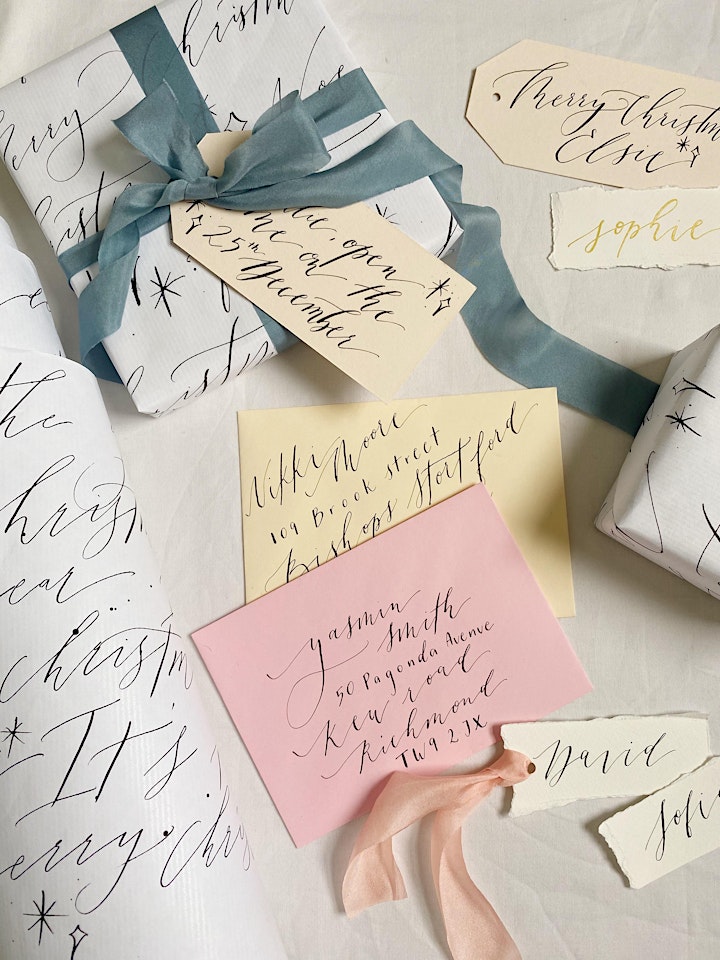 Merry
Merry Christm
Elsie
sophie
open
me on the
25th December
Nikki Moore
109 Brook street
Bishops Stortford
Yasmin
Smith
50 Pagonda Avenue
Kew road
Richmond
TW9 2JX
David
Sofi
the
christm
It's
erry